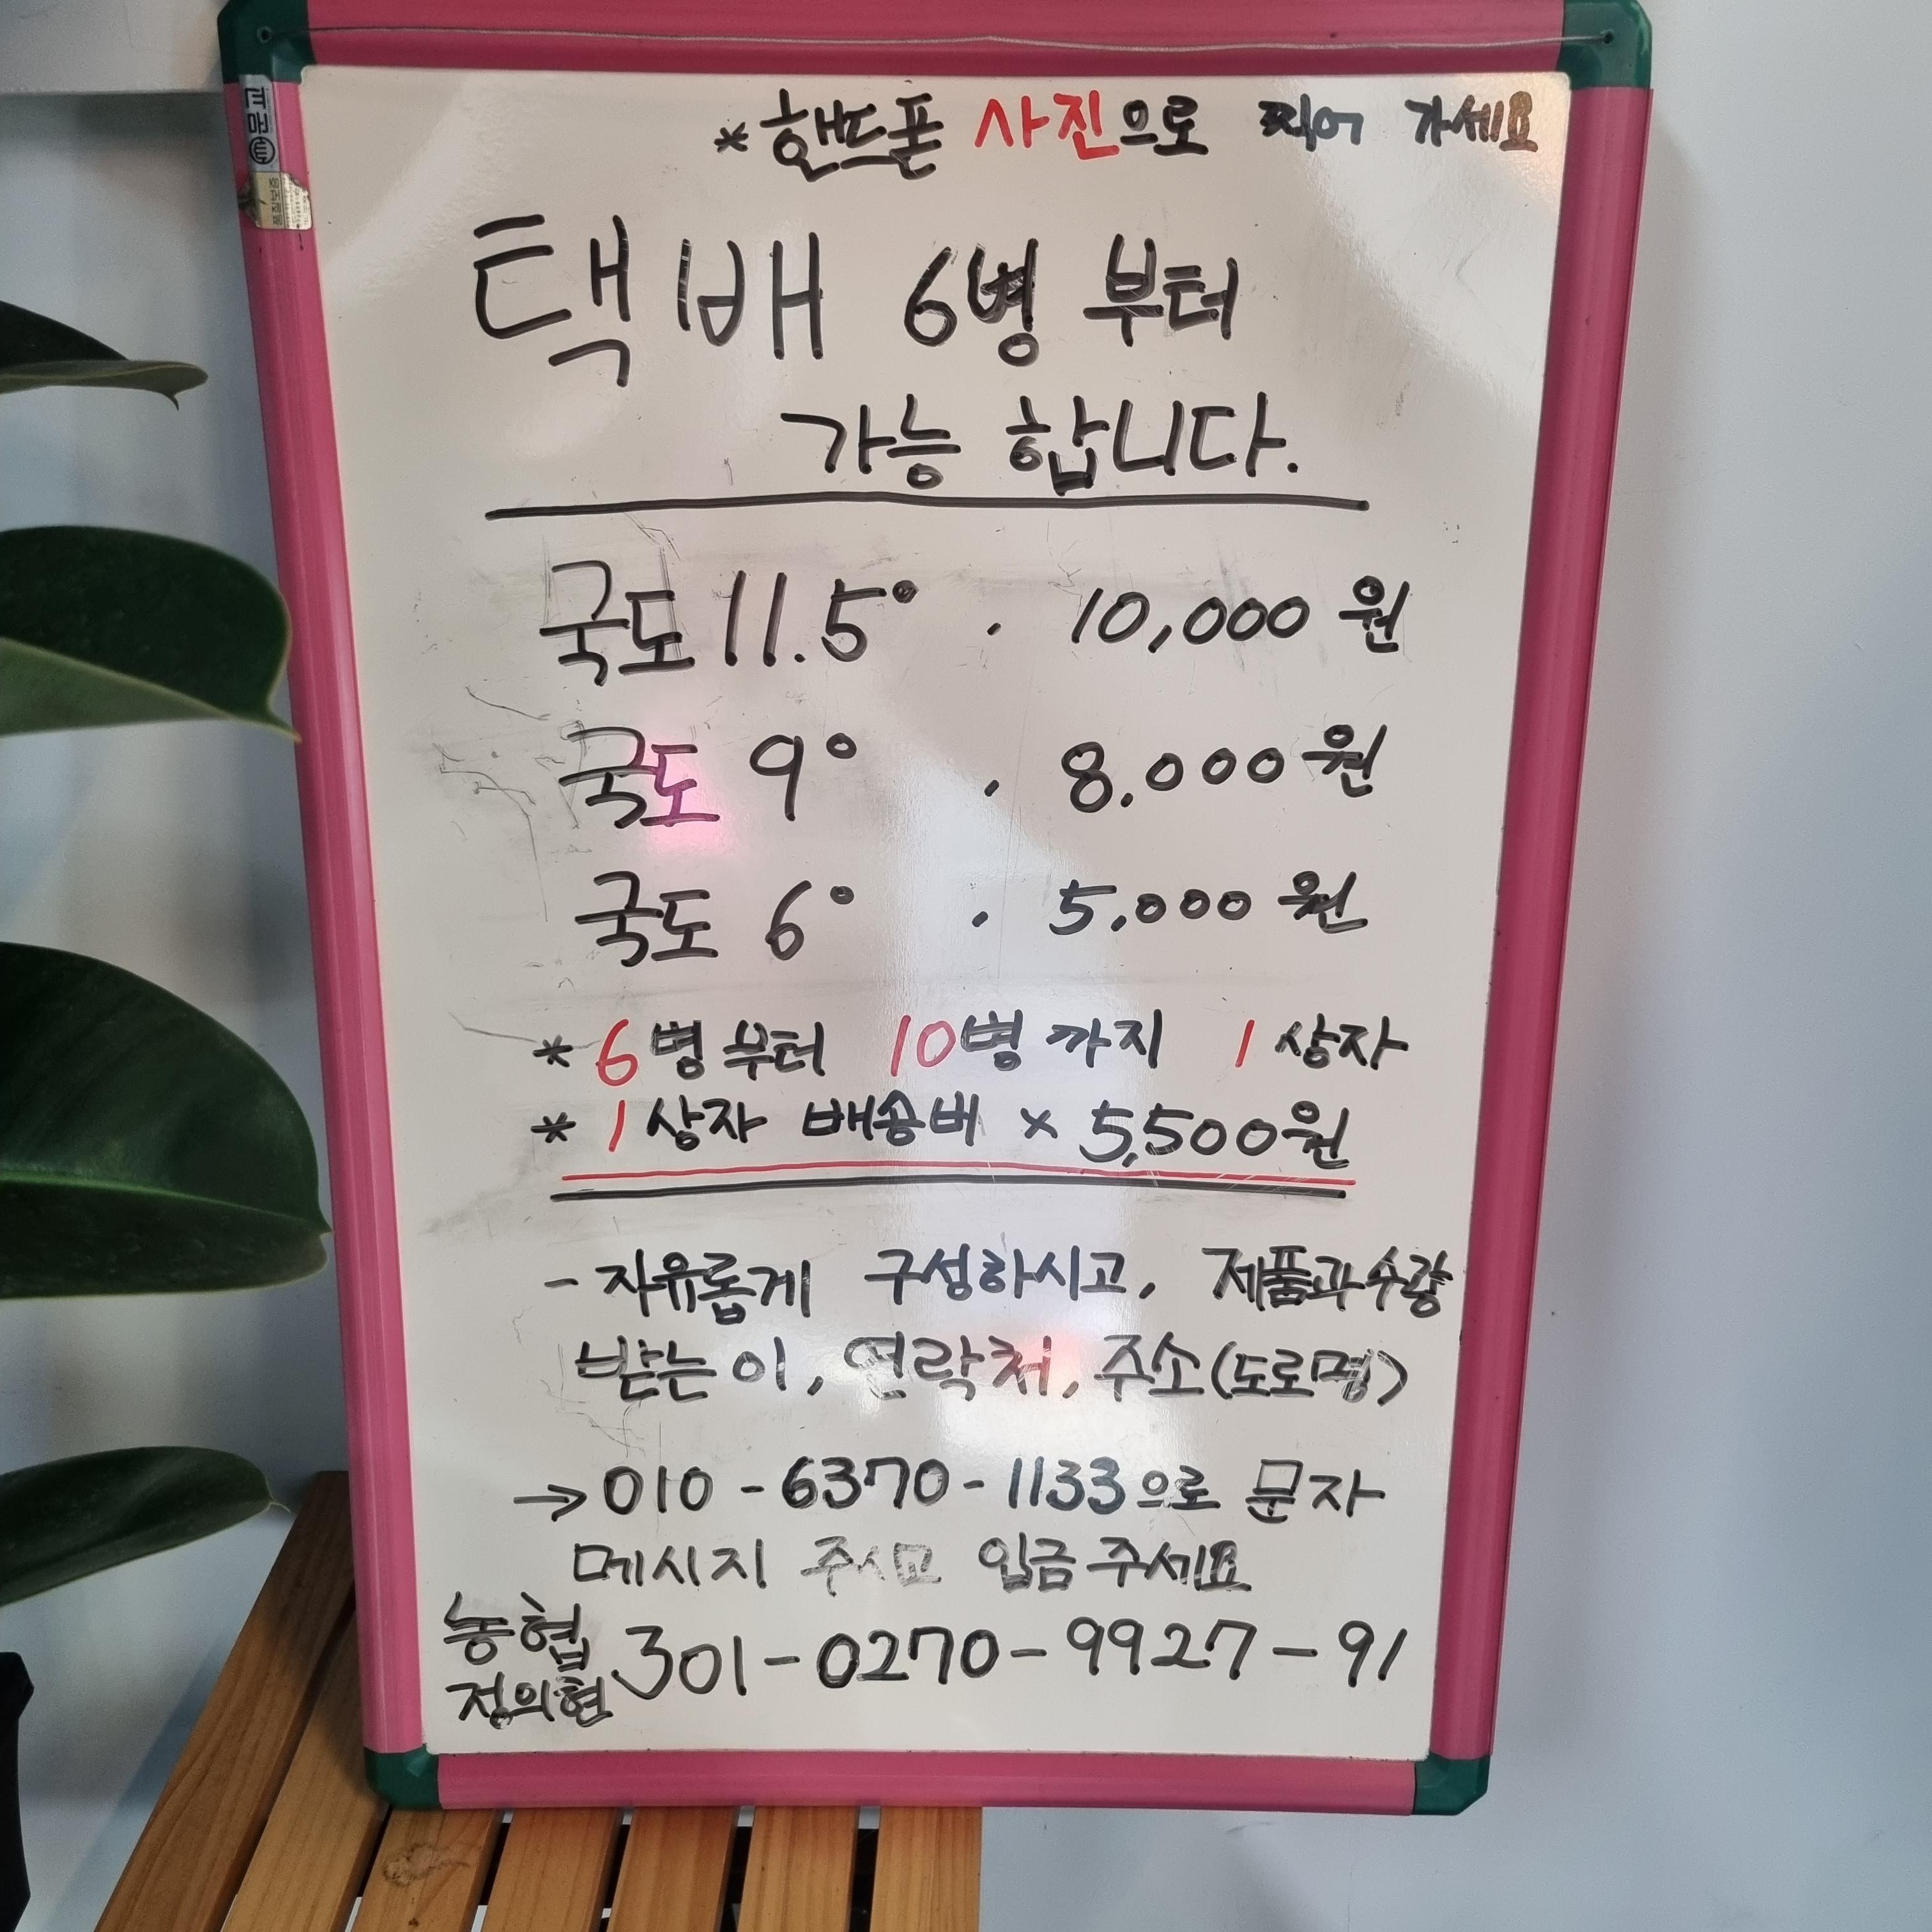 *핸드폰 사진으로 찍어 가세요
택배 6병 부터
가능 합니다.
국도 11.5° . 10,000 원
국도 9° . 8.000원
국도 6° . 5,000 원
* 6병부터 10병까지 1 상자
* 1 상자 배송비 × 5,500원
- 자유롭게 구성하시고, 제품과수량
받는이, 연락처, 주소(도로명)
→010-6370-1133으로 문자
메시지 주시고 입금주세요
농협
정의현 301-0270-9927-91